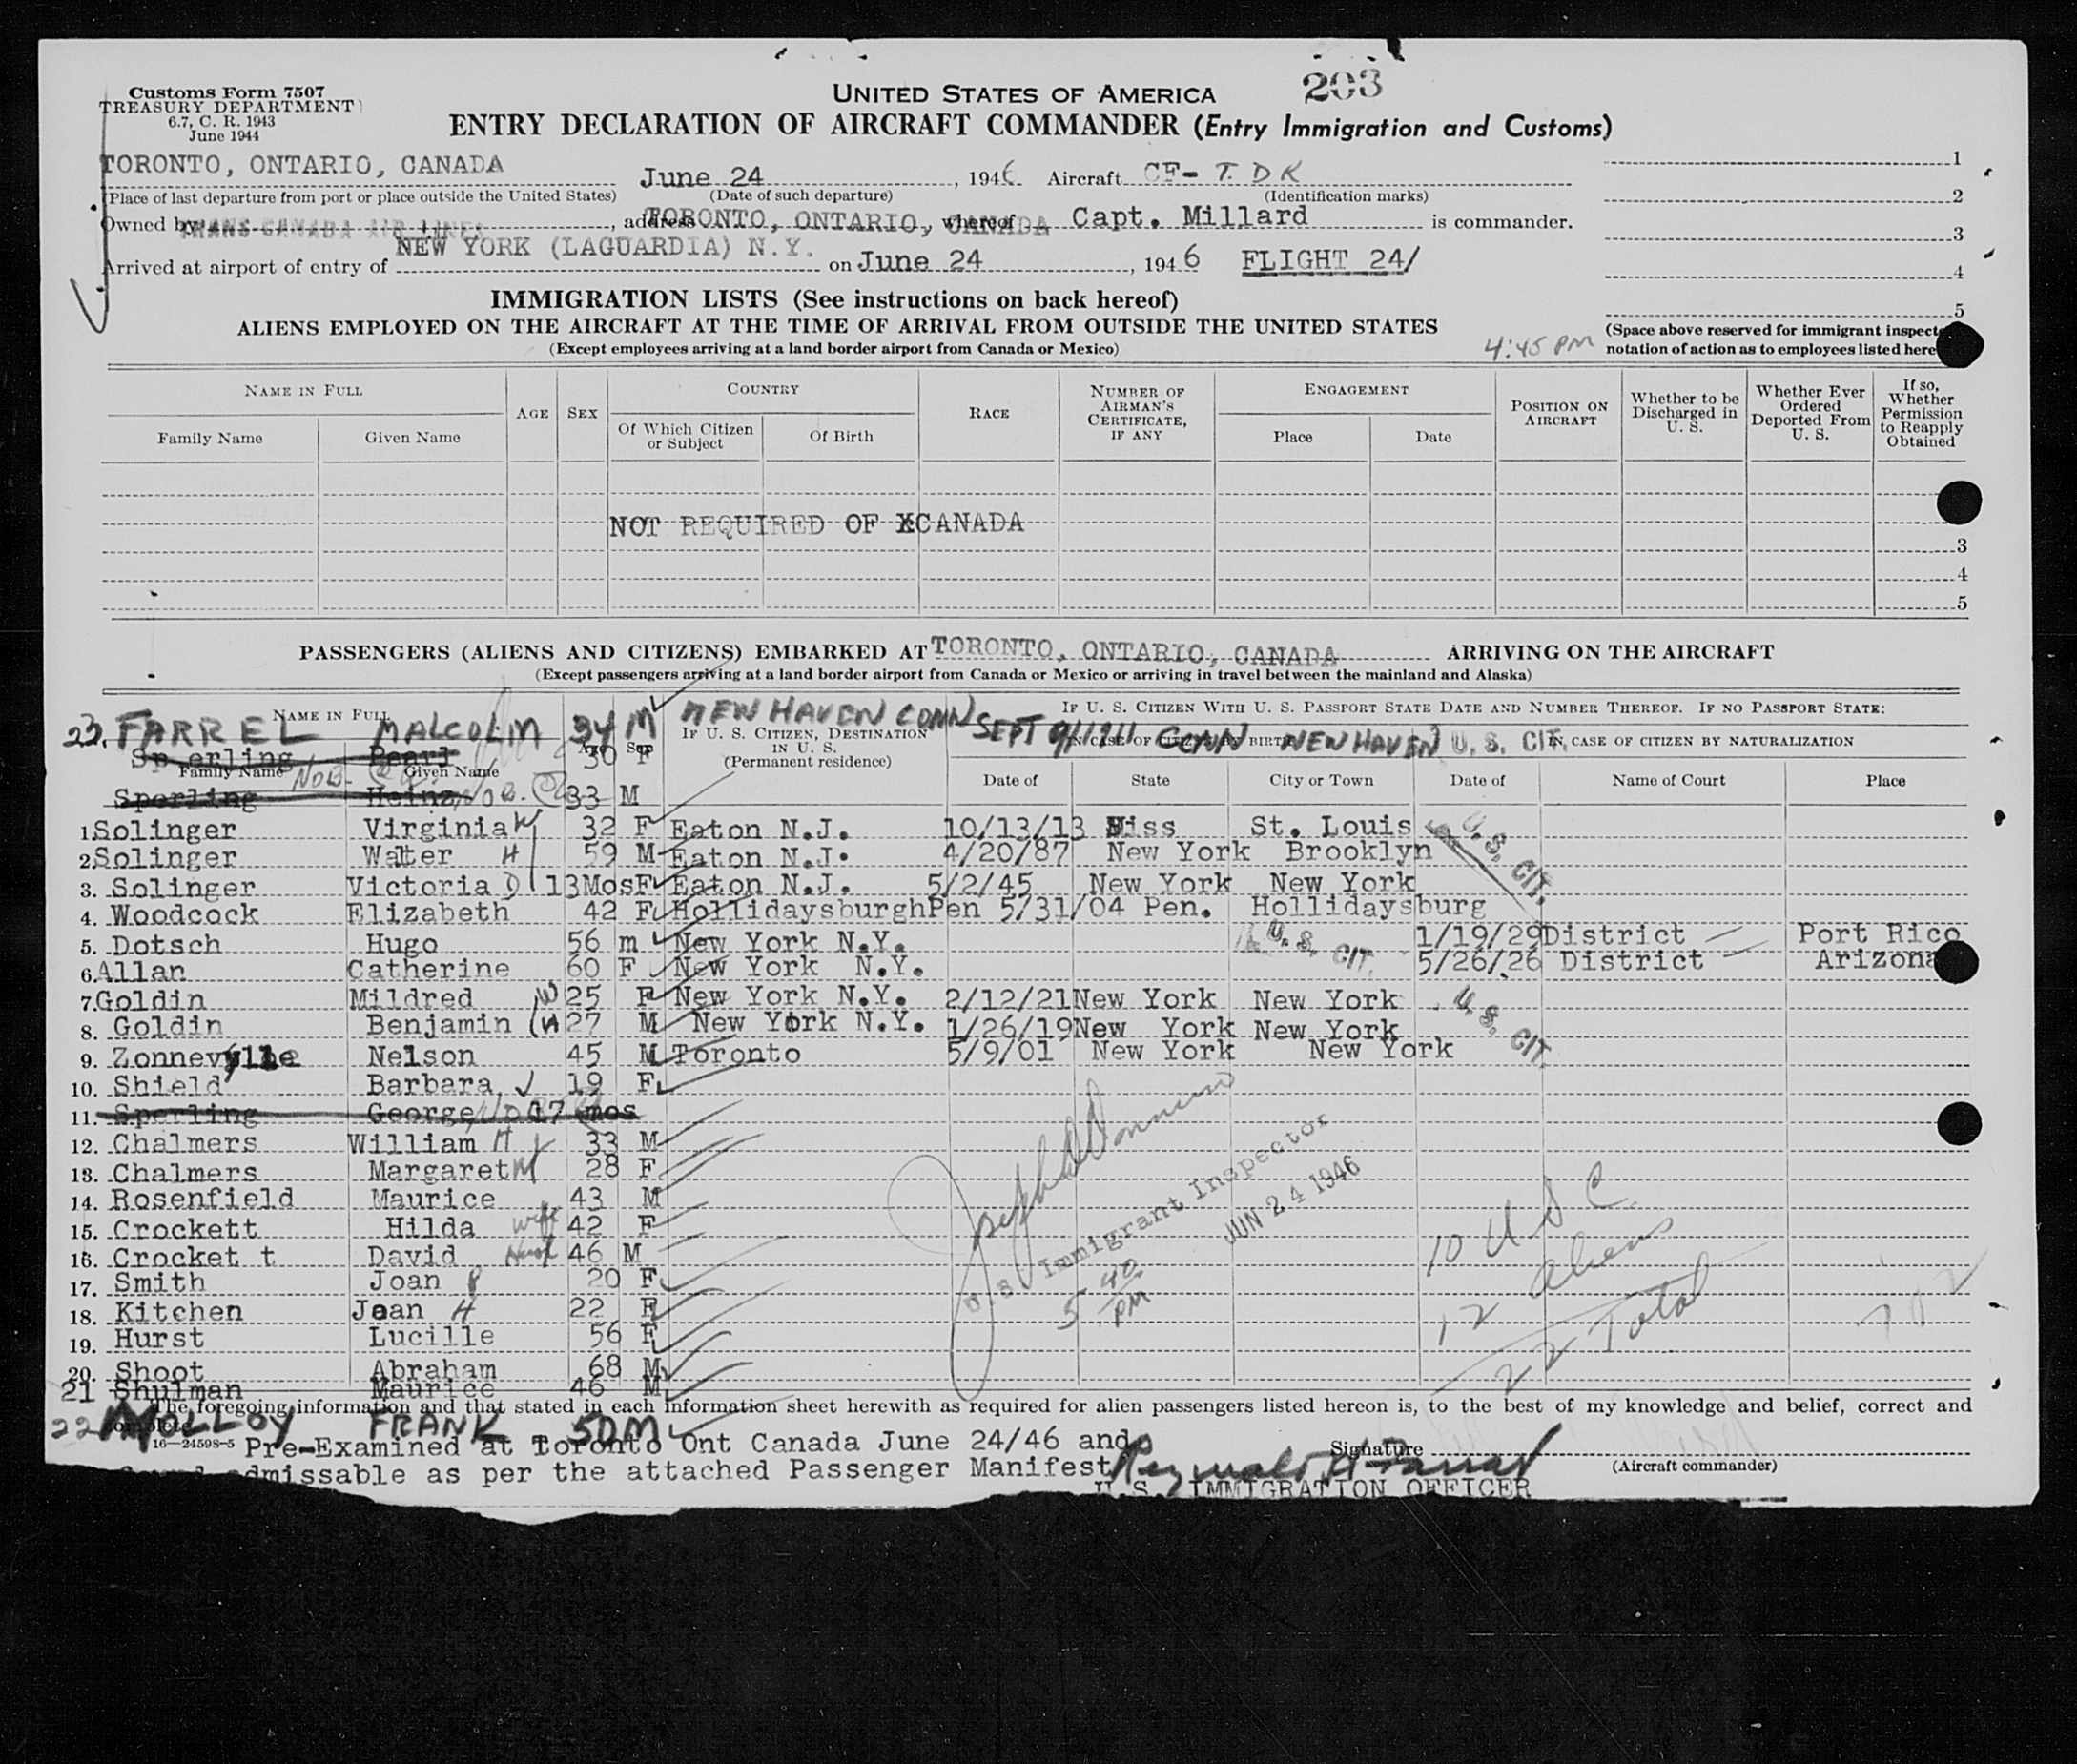 Customs Form 7507
TREASURY DEPARTMENT
6.7, C. R. 1943
June 1944
UNITED STATES OF AMERICA 203
ENTRY DECLARATION OF AIRCRAFT COMMANDER (Entry Immigration and Customs)
TORONTO, ONTARIO, CANADA June 24, 1946 Aircraft CF- T D K
(Place of last departure from port or place outside the United States) (Date of such departure) (Identification marks)
Owned by TRANS-CANADA AIR LINES, address TORONTO, ONTARIO, CANADA whereof Capt. Millard is commander.
Arrived at airport of entry of NEW YORK (LAGUARDIA) N.Y. on June 24, 1946 FLIGHT 24/
1
2
3
4
5
IMMIGRATION LISTS (See instructions on back hereof)
ALIENS EMPLOYED ON THE AIRCRAFT AT THE TIME OF ARRIVAL FROM OUTSIDE THE UNITED STATES
(Except employees arriving at a land border airport from Canada or Mexico)
4:45 PM
(Space above reserved for immigrant
notation of action as to employees listed here
NAME IN FULL AGE SEX COUNTRY RACE NUMBER OF AIRMAN'S CERTIFICATE, IF ANY ENGAGEMENT POSITION ON AIRCRAFT Whether to be Discharged in U. S. Whether Ever Ordered Deported From U. S. If so, Whether Permission to Reapply Obtained
Family Name Given Name Of Which Citizen or Subject Of Birth Place Date
NOT REQUIRED OF CANADA
3
4
5
PASSENGERS (ALIENS AND CITIZENS) EMBARKED AT TORONTO, ONTARIO, CANADA ARRIVING ON THE AIRCRAFT
(Except passengers arriving at a land border airport from Canada or Mexico or arriving in travel between the mainland and Alaska)
NAME IN FULL IF U. S. CITIZEN WITH U. S. PASSPORT STATE DATE AND NUMBER THEREOF. IF NO PASSPORT STATE:
23. FARREL MALCOLM 34 M NEW HAVEN CONN SEPT 9/1911 CONN NEW HAVEN U. S. CIT.
Age Sex IF U. S. CITIZEN, DESTINATION IN U. S. (Permanent residence) IN CASE OF CITIZEN BY BIRTH IN CASE OF CITIZEN BY NATURALIZATION
Sperling Pearl 30 F
Family Name Given Name Date of State City or Town Date of Name of Court Place
Sperling Heinz N.O.B. 33 M
1. Solinger Virginia W 32 F Eaton N.J. 10/13/13 Miss St. Louis
2. Solinger Walter H 59 M Eaton N.J. 4/20/87 New York Brooklyn U. S. CIT.
3. Solinger Victoria D 13Mos F Eaton N.J. 5/2/45 New York New York
4. Woodcock Elizabeth 42 F HollidaysburghPen 5/31/04 Pen. Hollidaysburg
5. Dotsch Hugo 56 m New York N.Y. U. S. CIT. 1/19/29 District Port Rico
6. Allan Catherine 60 F New York N.Y. 5/26/26 District Arizona
7. Goldin Mildred W 25 F New York N.Y. 2/12/21 New York New York U. S. CIT.
8. Goldin Benjamin H 27 M New York N.Y. 1/26/19 New York New York
9. Zonneville Nelson 45 M Toronto 5/9/01 New York New York
10. Shield Barbara 19 F
11. Sperling George 17 mos
12. Chalmers William H 33 M
13. Chalmers Margaret W 28 F
14. Rosenfield Maurice 43 M
15. Crockett Hilda wife 42 F
16. Crocket t David Husb 46 M
17. Smith Joan P 20 F
18. Kitchen Jean H 22 F
19. Hurst Lucille 56 F
20. Shoot Abraham 68 M
21 Shulman Maurice 46 M
U.S. Immigrant Inspector
JUN 24 1946
5 40 PM
10 U S C
12 Aliens
22 Total
The foregoing information and that stated in each information sheet herewith as required for alien passengers listed hereon is, to the best of my knowledge and belief, correct and
complete.
22 MOLLOY FRANK 50 M
16—24598-5 Pre-Examined at Toronto Ont Canada June 24/46 and Signature
admissable as per the attached Passenger Manifest (Aircraft commander)
U.S. IMMIGRATION OFFICER